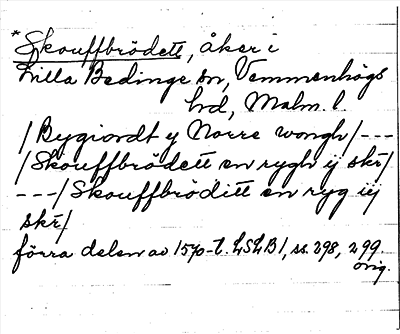 *Skouffbrödett, åker i
Lilla Bedinge sn, Vemmenhögs
hd, Malm. l.
/Bygiordt y Norre wongh/---
/Skouffbrödett en rygh ij skr/
---/Skouffbröditt en ryg iij
skr/
förra delen av 1570-t. LSLB1, ss. 298, 299.
orig.